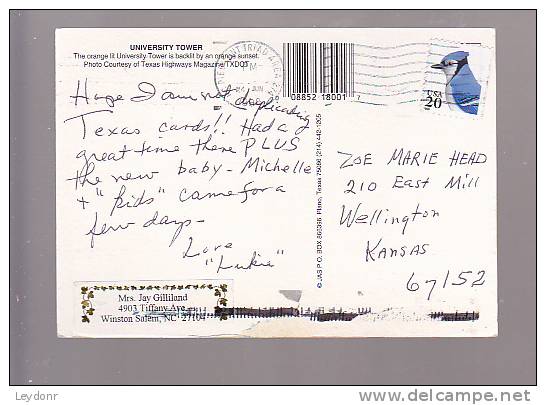 UNIVERSITY TOWER
The orange lit University Tower is backlit by an orange sunset.
Photo Courtesy of Texas Highways Magazine/TXDOT
Hope I am not duplicating
Texas cards!! Had a
great time there PLUS
the new baby - Michelle
+ "kids" came for a
few days -
Love
"Lukie"
Mrs. Jay Gilliland
4903 Tiffany Ave
Winston Salem, NC 27104
PIEDMONT TRIAD AREA
JUN
08852 18001
© JAS P.O. BOX 860366 Plano, Texas 75086 (214) 442-1205
USA
20
ZOE MARIE HEAD
210 East Mill
Wellington
KANSAS
67152
Leydonr
delcampe.net